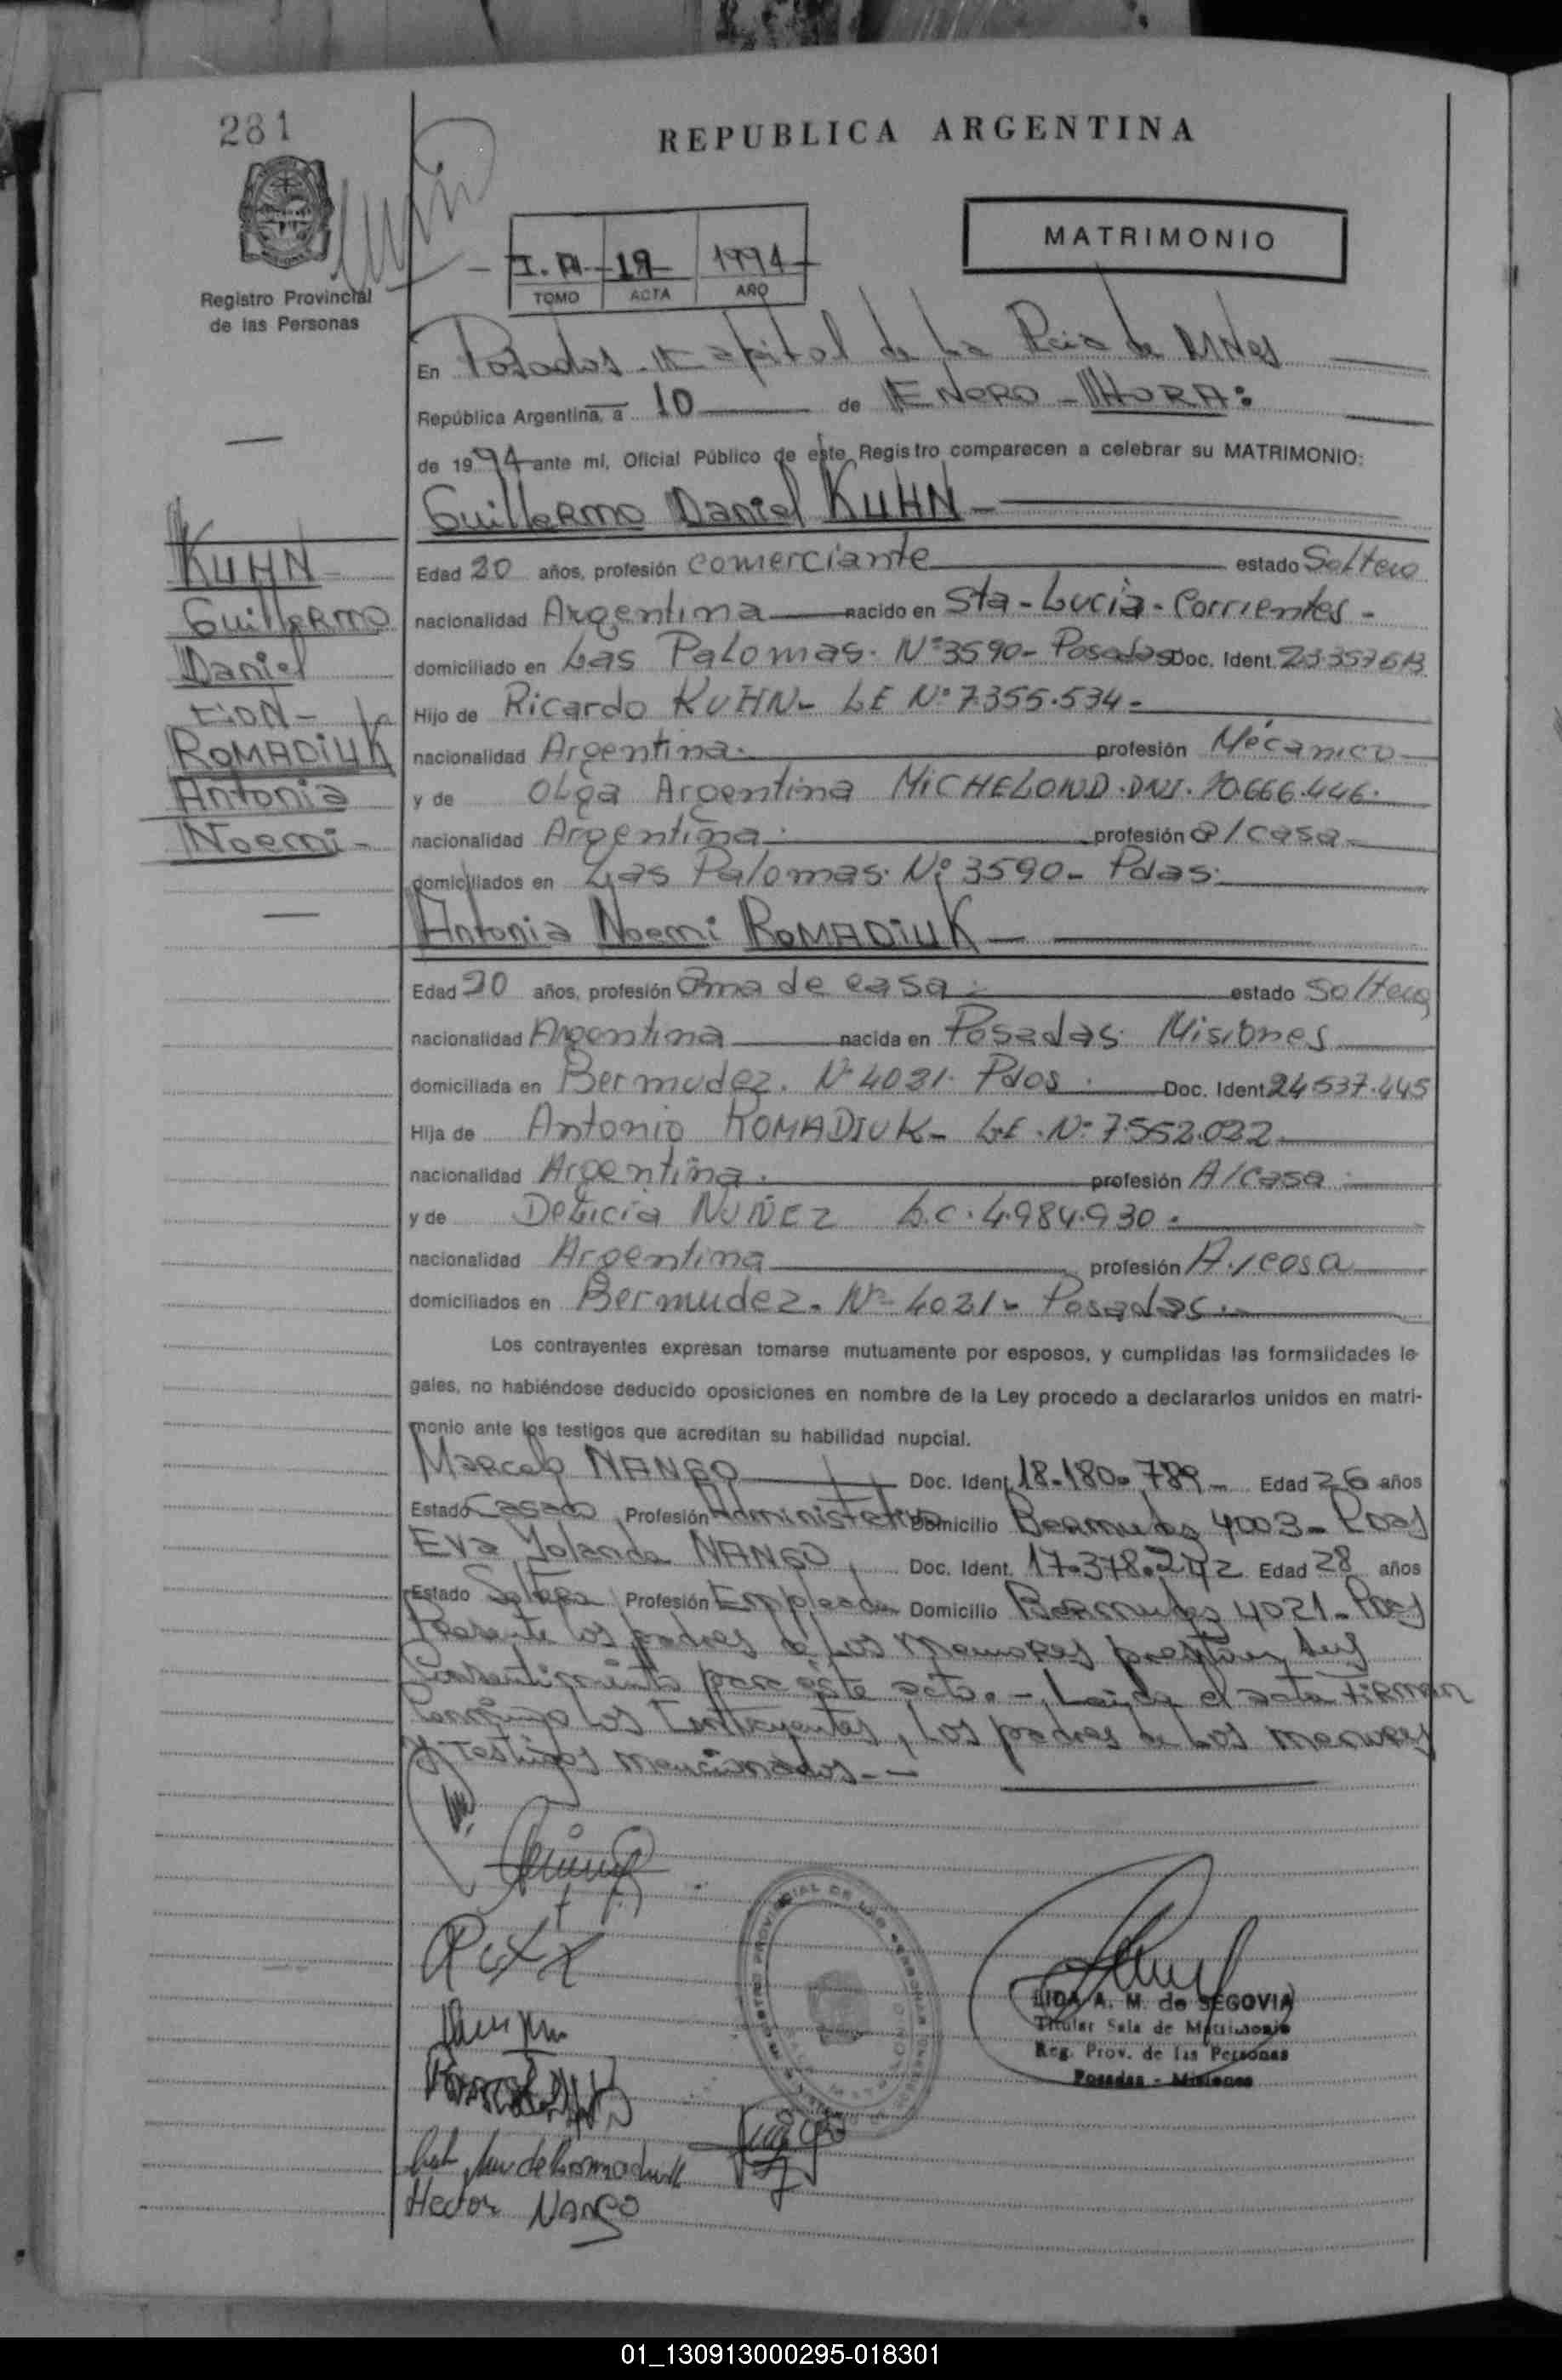 281
REPUBLICA ARGENTINA
MATRIMONIO
I. A - 19 1994
TOMO ACTA AÑO
Registro Provincial
de las Personas
En Posadas Capital de La Pcia de Mnes
República Argentina, a 10 de ENERO - HORA:
de 1994 ante mí, Oficial Público de este Registro comparecen a celebrar su MATRIMONIO:
Guillermo Daniel KUHN
KUHN
Guillermo
Daniel
con
ROMADIUK
Antonia
Noemi
Edad 20 años, profesión comerciante estado Soltero
nacionalidad Argentina nacido en Sta - Lucia - Corrientes -
domiciliado en Las Palomas. Nº 3590 - Posadas Doc. Ident.
Hijo de Ricardo KUHN - LE Nº 7.355.534 -
nacionalidad Argentina. profesión Mécanico
y de Olga Argentina MICHELOUD. DNI. 10.666.446.
nacionalidad Argentina. profesión a/casa
domiciliados en Las Palomas. Nº 3590 - Pdas.
Antonia Noemi ROMADIUK
Edad 20 años, profesión ama de casa estado Soltera
nacionalidad Argentina nacida en Posadas. Misiones
domiciliada en Bermudez. Nº 4021. Pdas. Doc. Ident. 24.537.445
Hija de Antonio ROMADIUK - L.E. Nº 7.552.022
nacionalidad Argentina. profesión A/casa
y de Delicia NUÑEZ L.C. 4.984.930.
nacionalidad Argentina profesión A./casa
domiciliados en Bermudez. Nº 4021 - Posadas.
Los contrayentes expresan tomarse mutuamente por esposos, y cumplidas las formalidades le-
gales, no habiéndose deducido oposiciones en nombre de la Ley procedo a declararlos unidos en matri-
monio ante los testigos que acreditan su habilidad nupcial.
Marcelo NANGO Doc. Ident. 18.180.789 - Edad 26 años
Estado Casado Profesión Administrativo Domicilio Bermudez 4003 - Pdas
Eva Yolanda NANGO Doc. Ident. 17.378.242 Edad 28 años
Estado Soltera Profesión Empleada Domicilio Bermudez 4021 - Pdas
Presente los padres de los menores prestan sus
Consentimiento para este acto. - Leida el acta firman
conmigo los Contrayentes, los padres de los menores
y testigos mencionados. -
LIDA A. M. de SEGOVIA
Titular Sala de Matrimonio
Reg. Prov. de las Personas
Posadas - Misiones
de Romadiuk
Hector Nango
01_130913000295-018301